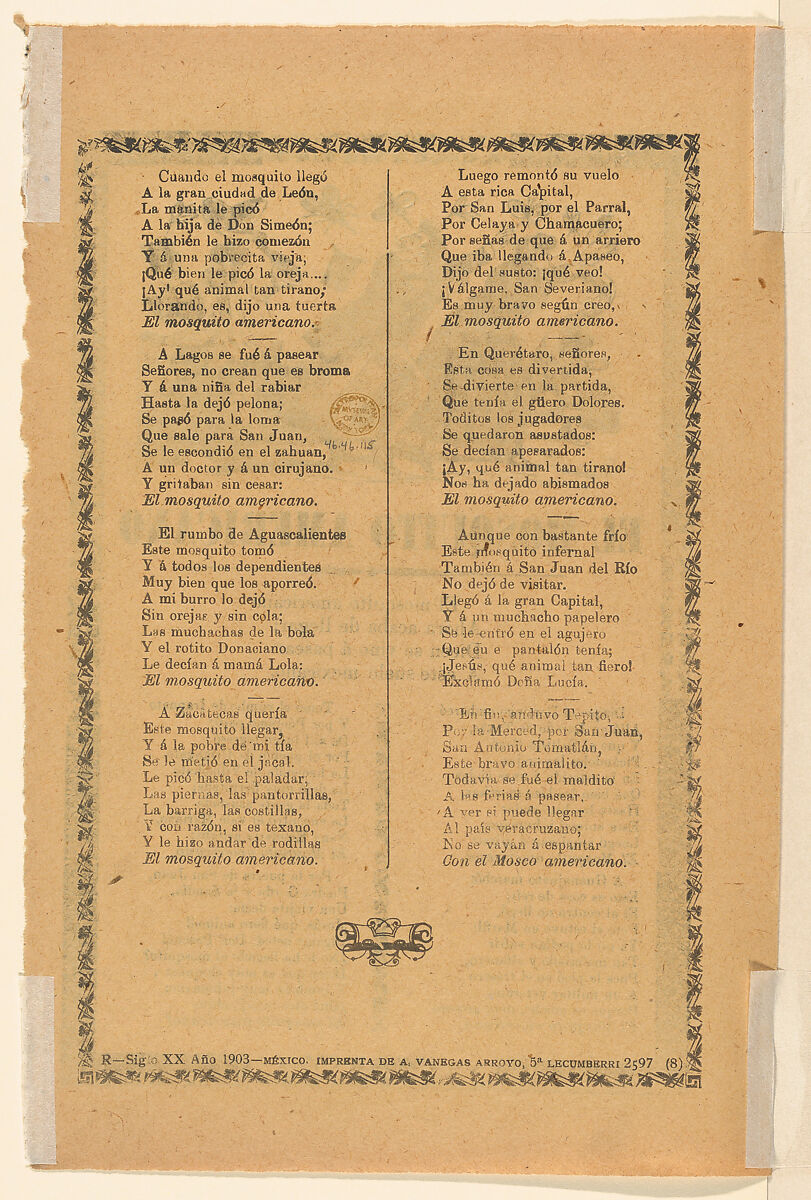 Cuando el mosquito llegó
A la gran ciudad de León,
La manita le picó
A la hija de Don Simeón;
También le hizo comezón
Y á una pobrecita vieja;
¡Qué bien le picó la oreja....
¡Ay! qué animal tan tirano;
Llorando, es, dijo una tuerta
El mosquito americano.
A Lagos se fué á pasear
Señores, no crean que es broma
Y á una niña del rabiar
Hasta la dejó pelona;
Se pasó para la loma
Que sale para San Juan,
Se le escondió en el zahuan,
A un doctor y á un cirujano.
Y gritaban sin cesar:
El mosquito americano.
El rumbo de Aguascalientes
Este mosquito tomó
Y á todos los dependientes
Muy bien que los aporreó.
A mi burro lo dejó
Sin orejas y sin cola;
Las muchachas de la bola
Y el rotito Donaciano
Le decían á mamá Lola:
El mosquito americano.
A Zacatecas quería
Este mosquito llegar,
Y á la pobre de mi tía
Se le metió en el jacal.
Le picó hasta el paladar,
Las piernas, las pantorrillas,
La barriga, las costillas,
Y con razón, si es texano,
Y le hizo andar de rodillas
El mosquito americano.
Luego remontó su vuelo
A esta rica Capital,
Por San Luis, por el Parral,
Por Celaya y Chamacuero;
Por señas de que á un arriero
Que iba llegando á Apaseo,
Dijo del susto: ¡qué veo!
¡Válgame, San Severiano!
Es muy bravo según creo,
El mosquito americano.
En Querétaro, señores,
Esta cosa es divertida,
Se divierte en la partida,
Que tenía el güero Dolores.
Toditos los jugadores
Se quedaron asustados:
Se decían apesarados:
¡Ay, qué animal tan tirano!
Nos ha dejado abismados
El mosquito americano.
Aunque con bastante frío
Este mosquito infernal
También á San Juan del Río
No dejó de visitar.
Llegó á la gran Capital,
Y á un muchacho papelero
Se le entró en el agujero
Que en e pantalón tenía;
¡Jesús, qué animal tan fiero!
Exclamó Doña Lucía.
En fin, anduvo Tepito,
Por la Merced, por San Juan,
San Antonio Tomatlán,
Este bravo animalito.
Todavía se fué el maldito
A las ferias á pasear,
A ver si puede llegar
Al país veracruzano;
No se vayan á espantar
Con el Mosco americano.
METROPOLITAN
MUSEUM
OF ART
NEW YORK
46.46.115
R—Siglo XX Año 1903—MÉXICO. IMPRENTA DE A. VANEGAS ARROYO, 5ª LECUMBERRI 2597 (8)